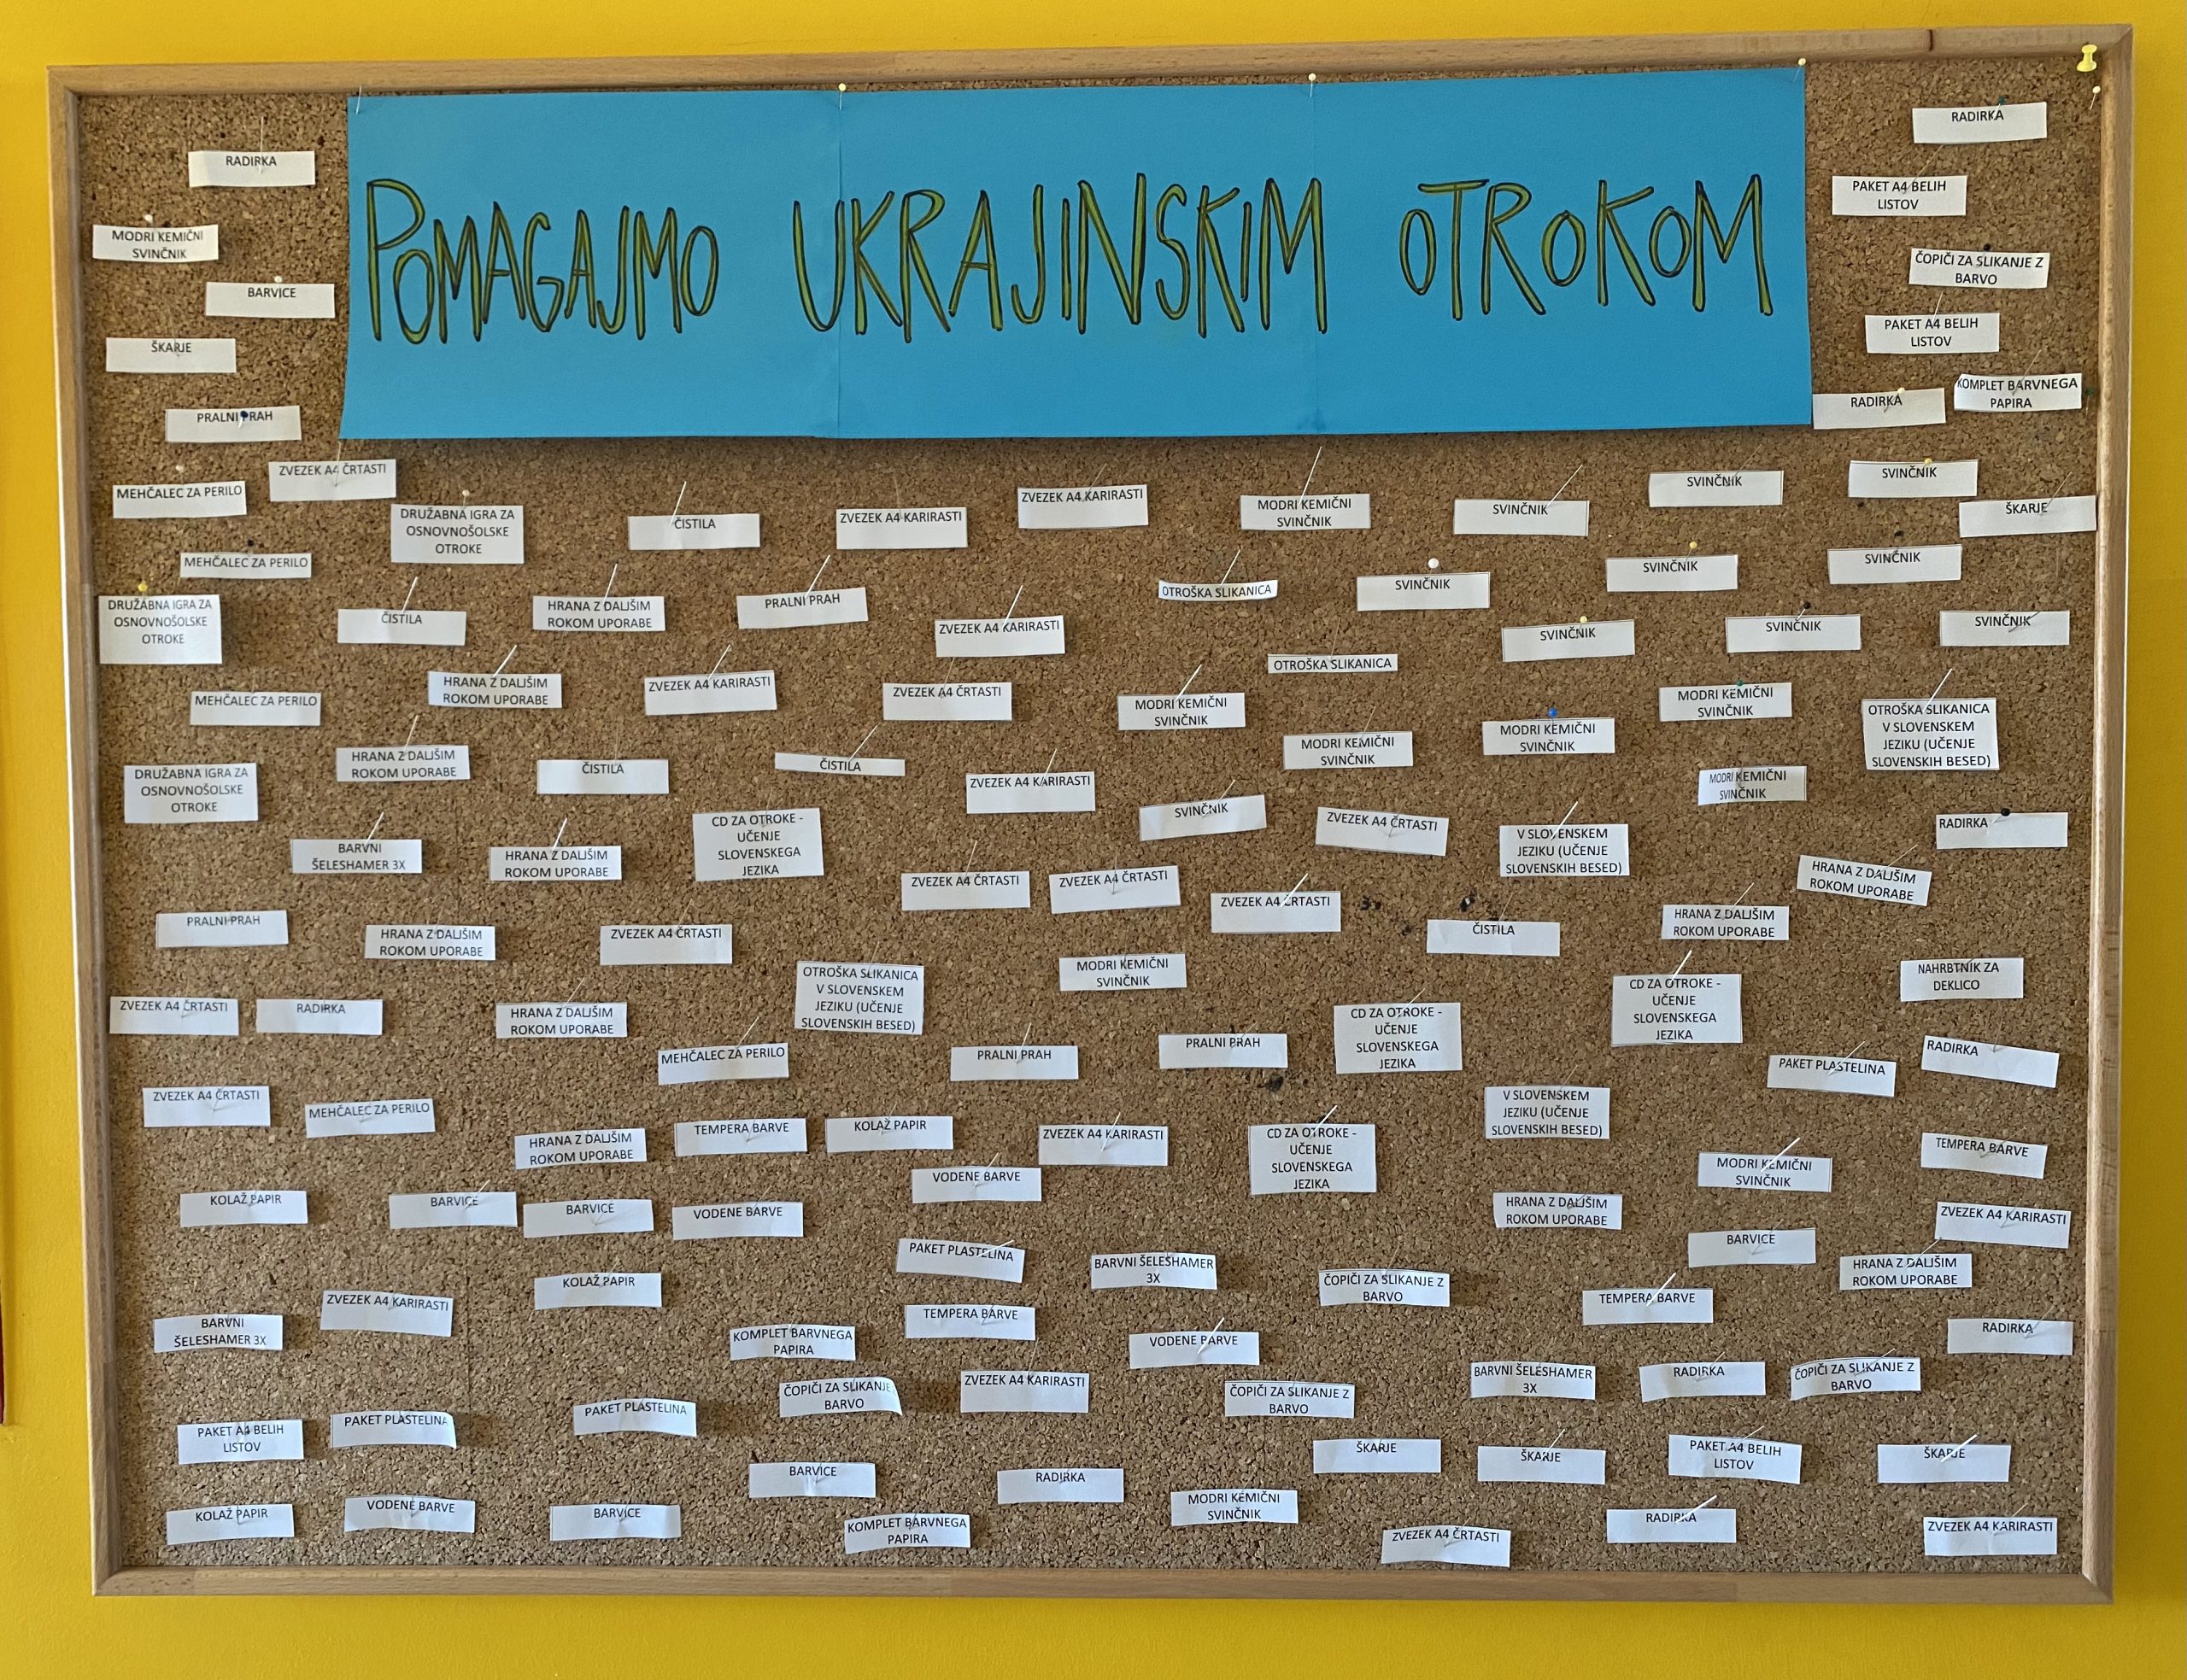 POMAGAJMO UKRAJINSKIM OTROKOM
RADIRKA
RADIRKA
MODRI KEMIČNI
SVINČNIK
PAKET A4 BELIH
LISTOV
BARVICE
ČOPIČI ZA SLIKANJE Z
BARVO
ŠKARJE
PAKET A4 BELIH
LISTOV
PRALNI PRAH
RADIRKA
KOMPLET BARVNEGA
PAPIRA
MEHČALEC ZA PERILO
ZVEZEK A4 ČRTASTI
DRUŽABNA IGRA ZA
OSNOVNOŠOLSKE
OTROKE
ČISTILA
ZVEZEK A4 KARIRASTI
ZVEZEK A4 KARIRASTI
MODRI KEMIČNI
SVINČNIK
SVINČNIK
SVINČNIK
SVINČNIK
ŠKARJE
MEHČALEC ZA PERILO
OTROŠKA SLIKANICA
SVINČNIK
SVINČNIK
SVINČNIK
DRUŽABNA IGRA ZA
OSNOVNOŠOLSKE
OTROKE
ČISTILA
HRANA Z DALJŠIM
ROKOM UPORABE
PRALNI PRAH
ZVEZEK A4 KARIRASTI
OTROŠKA SLIKANICA
SVINČNIK
SVINČNIK
SVINČNIK
MEHČALEC ZA PERILO
HRANA Z DALJŠIM
ROKOM UPORABE
ZVEZEK A4 KARIRASTI
ZVEZEK A4 ČRTASTI
MODRI KEMIČNI
SVINČNIK
MODRI KEMIČNI
SVINČNIK
MODRI KEMIČNI
SVINČNIK
MODRI KEMIČNI
SVINČNIK
OTROŠKA SLIKANICA
V SLOVENSKEM
JEZIKU (UČENJE
SLOVENSKIH BESED)
DRUŽABNA IGRA ZA
OSNOVNOŠOLSKE
OTROKE
HRANA Z DALJŠIM
ROKOM UPORABE
ČISTILA
ČISTILA
ZVEZEK A4 KARIRASTI
SVINČNIK
ZVEZEK A4 ČRTASTI
V SLOVENSKEM
JEZIKU (UČENJE
SLOVENSKIH BESED)
MODRI KEMIČNI
SVINČNIK
RADIRKA
BARVNI
ŠELESHAMER 3X
HRANA Z DALJŠIM
ROKOM UPORABE
CD ZA OTROKE -
UČENJE
SLOVENSKEGA
JEZIKA
ZVEZEK A4 ČRTASTI
ZVEZEK A4 ČRTASTI
ZVEZEK A4 ČRTASTI
ČISTILA
HRANA Z DALJŠIM
ROKOM UPORABE
HRANA Z DALJŠIM
ROKOM UPORABE
PRALNI PRAH
HRANA Z DALJŠIM
ROKOM UPORABE
ZVEZEK A4 ČRTASTI
OTROŠKA SLIKANICA
V SLOVENSKEM
JEZIKU (UČENJE
SLOVENSKIH BESED)
MODRI KEMIČNI
SVINČNIK
CD ZA OTROKE -
UČENJE
SLOVENSKEGA
JEZIKA
CD ZA OTROKE -
UČENJE
SLOVENSKEGA
JEZIKA
NAHRBTNIK ZA
DEKLICO
ZVEZEK A4 ČRTASTI
RADIRKA
HRANA Z DALJŠIM
ROKOM UPORABE
MEHČALEC ZA PERILO
PRALNI PRAH
PRALNI PRAH
PAKET PLASTELINA
RADIRKA
ZVEZEK A4 ČRTASTI
MEHČALEC ZA PERILO
HRANA Z DALJŠIM
ROKOM UPORABE
TEMPERA BARVE
KOLAŽ PAPIR
ZVEZEK A4 KARIRASTI
CD ZA OTROKE -
UČENJE
SLOVENSKEGA
JEZIKA
V SLOVENSKEM
JEZIKU (UČENJE
SLOVENSKIH BESED)
MODRI KEMIČNI
SVINČNIK
TEMPERA BARVE
KOLAŽ PAPIR
BARVICE
BARVICE
VODENE BARVE
VODENE BARVE
HRANA Z DALJŠIM
ROKOM UPORABE
BARVICE
ZVEZEK A4 KARIRASTI
PAKET PLASTELINA
BARVNI ŠELESHAMER
3X
ČOPIČI ZA SLIKANJE Z
BARVO
HRANA Z DALJŠIM
ROKOM UPORABE
BARVNI
ŠELESHAMER 3X
ZVEZEK A4 KARIRASTI
KOLAŽ PAPIR
KOMPLET BARVNEGA
PAPIRA
TEMPERA BARVE
VODENE BARVE
TEMPERA BARVE
RADIRKA
PAKET A4 BELIH
LISTOV
PAKET PLASTELINA
PAKET PLASTELINA
ČOPIČI ZA SLIKANJE
BARVO
ZVEZEK A4 KARIRASTI
ČOPIČI ZA SLIKANJE Z
BARVO
BARVNI ŠELESHAMER
3X
RADIRKA
ČOPIČI ZA SLIKANJE Z
BARVO
BARVICE
RADIRKA
ŠKARJE
ŠKARJE
PAKET A4 BELIH
LISTOV
ŠKARJE
KOLAŽ PAPIR
VODENE BARVE
BARVICE
KOMPLET BARVNEGA
PAPIRA
MODRI KEMIČNI
SVINČNIK
ZVEZEK A4 ČRTASTI
RADIRKA
ZVEZEK A4 KARIRASTI